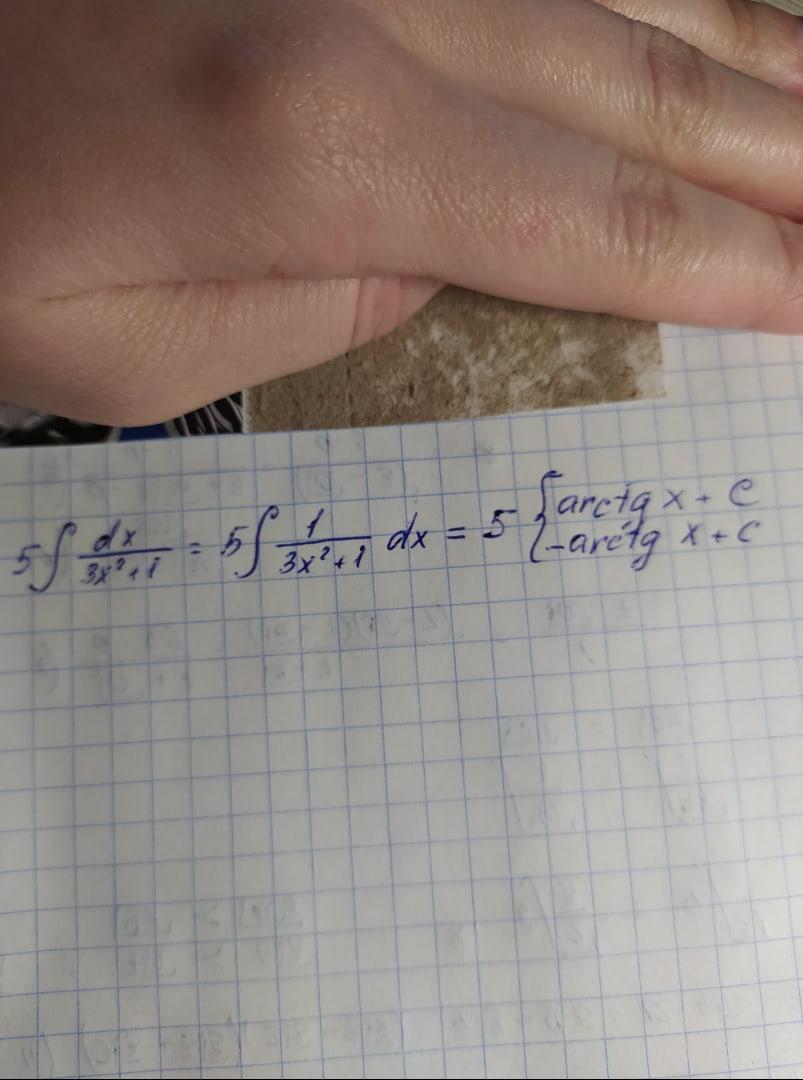 5∫ dx/(3x²+1) = 5∫ 1/(3x²+1) dx = 5 { arctg x + C
-arctg x + C